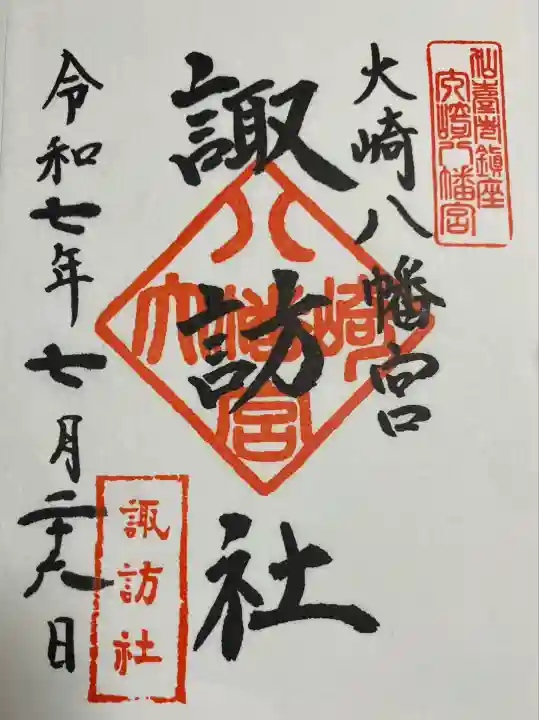 仙臺市鎮座
大崎八幡宮
大崎八幡宮
諏訪社
八
大幡崎
宮
令和七年七月二十九日
諏訪社